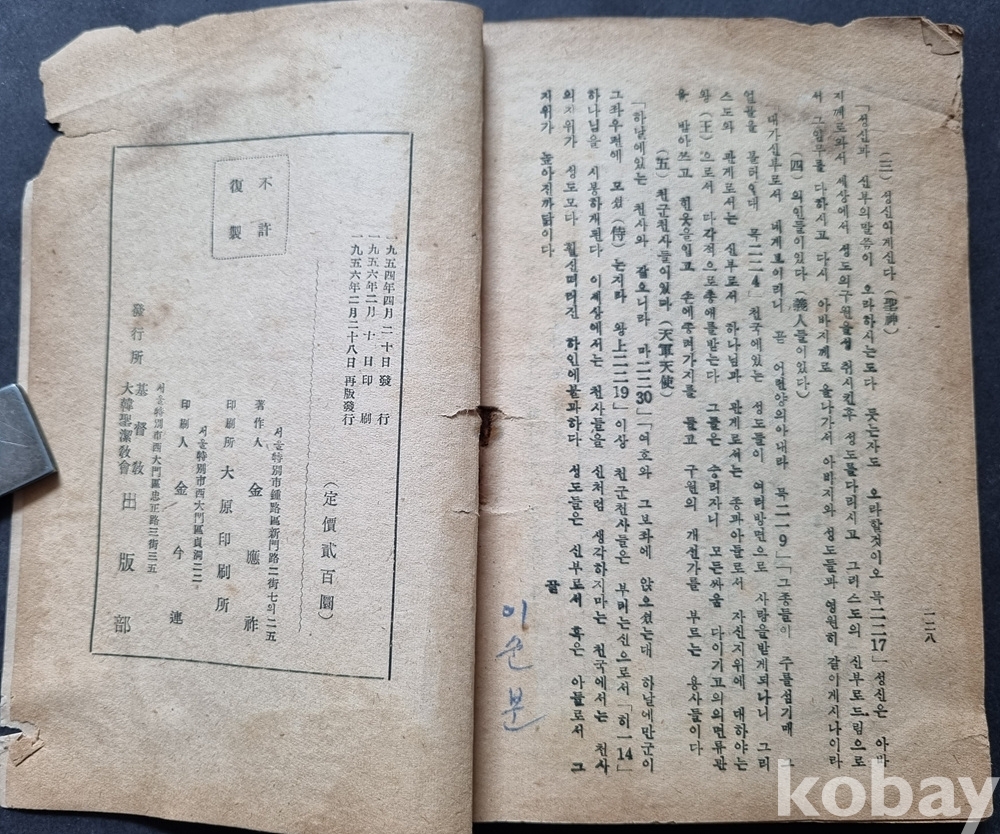 一二八
(三) 성신이게신다 (聖神)
「성신과 신부의말씀이 오라하시는도다 듯는자도 오라할것이오 묵二二17」 성신은 아바
지께로와서 세상에서 성도의구원을성취시킨후 성도를다리시고 그리스도의 신부로드림으로
서 그임무를 다하시고 다시 아바지께로 올나가서 아바지와 성도들과 영원히 갈이게시나이라
(四) 의인들이있다 (義人들이있다)
「내가신부로서 네게보이려니 곧 어린양의아내라 묵二一9」「그종들이 주를섬기매 그
얼골을 볼러인대 묵二二4」 천국에있는 성도들이 여러방면으로 사랑을받게되나니 그리
스도와 관계로서는 신부로서 하나님과 관계로서는 종과아들로서 자신지위에 대하야는
왕(王)으로서 다각적으로총애를받는다 그들은 승리자니 모든싸움 다이기고의의면류관
을 받아쓰고 흰옷을입고 손에종려가지를 들고 구원의 개선가를 부르는 용사들이다
(五) 천군천사들이있다 (天軍天使)
「하날에있는 천사와 갈으니라 마二二30」「여호와 그보좌에 앉으셨는대 하날에만군이
그좌우편에 모셨(侍)는지라 왕上二二19」 이상 천군천사들은 부리는신으로서 「히一14」
하나님을 시봉하게된다 이세상에서는 천사들을 신처럼 생각하지마는 천국에서는 천사
의지위가 성도모다 훨신떠러진 하인에불과하다 성도들은 신부로서 혹은 아들로서 그
지위가 높아진까닭이다
끝
이순분
一九五四年四月二十日發行
一九五六年二月十日印刷
一九五六年二月二十八日再版發行
不許
復製
(定價貳百圜)
서울特別市鍾路區新門路二街七의二五
著作人 金應祚
印刷所 大原印刷所
서울特別市西大門區貞洞二二
印刷人 金今連
서울特別市西大門區忠正路三街三五
發行所 基督教大韓聖潔教會出版部
kobay